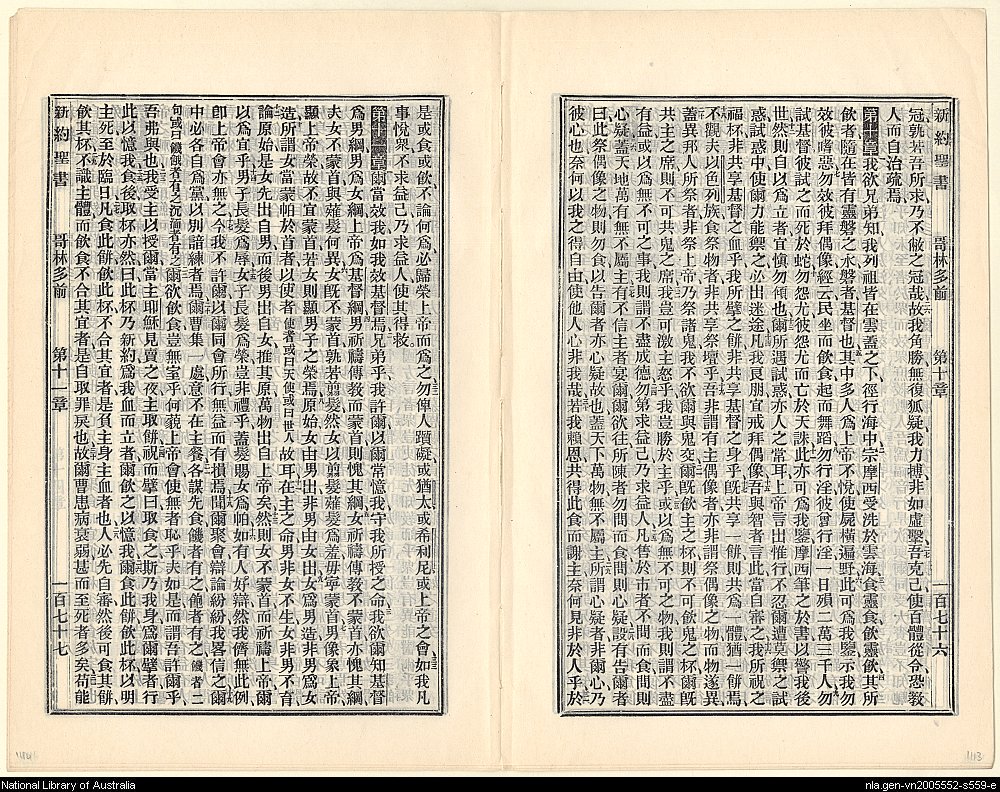 新約聖書 哥林多前 第十章 一百七十六
冠孰若吾所求乃不敝之冠哉故我角勝無復狐疑我力搏非如虛擊吾克己使百體從令恐敎
人而自治疏焉
第十章我欲兄弟知我列祖皆在雲蓋之下徑行海中宗摩西受洗於雲海食靈食飲靈飲其所
飲者隨在皆有靈磐之水磐者基督也其中多人爲上帝不悅使屍橫遍野此可爲我鑒示我勿
效彼嗜惡勿效彼拜偶像經云民坐而飲食起而舞蹈勿行淫彼曾行淫一日殞二萬三千人勿
試基督彼試之而死於蛇勿怨尤彼怨尤而亡於天誅此亦可爲我鑒摩西筆之於書以警我後
世然則自以爲立者宜愼勿傾也爾所遇試惑亦人之常耳上帝言出惟行不忍爾遭莫禦之試
惑試惑中使爾力能禦之必出迷途凡我良朋宜戒拜偶像吾與智者言此當自審之我所祝之
福杯非共享基督之血乎我所擘之餅非共享基督之身乎旣共享一餅則共爲一體猶一餅焉
不觀夫以色列族食祭物者非共享祭壇乎吾非謂有主偶像者亦非謂祭偶像之物而物遂異
蓋異邦人所祭者非祭上帝乃祭諸鬼我不欲爾與鬼交爾旣飲主之杯則不可飲鬼之杯爾旣
共主之席則不可共鬼之席我豈可激主怒乎我豈勝於主乎或以爲無不可之物我則謂不盡
有益或以爲無不可之事我則謂不盡成德勿第求益己乃求益人凡售於市者不問而食問則
心疑蓋天地萬有無不屬主有不信主者宴爾爾欲往所陳者勿問而食問則心疑設有告爾者
曰此祭偶像之物則勿食以告爾者亦心疑故也蓋天下萬物無不屬主所謂心疑者非爾心乃
彼心也奈何以我之得自由使他人心非我哉若我賴恩共得此食而謝主奈何見非於人乎於
是或食或飲不論何爲必歸榮上帝而爲之勿俾人躓礙或猶太或希利尼或上帝之會如我凡
事悅衆不求益己乃求益人使其得救
第十一章爾當效我如我效基督焉兄弟乎我許爾以爾常憶我守我所授之命我欲爾知基督
爲男綱男爲女綱上帝爲基督綱男祈禱傳敎而蒙首則愧其綱女祈禱傳敎不蒙首亦愧其綱
夫女不蒙首與薙髮何異女旣不蒙首孰若剪髮然女以剪髮薙髮爲羞毋寧蒙首男像象上帝
顯上帝榮故不宜蒙首若女則顯男子之榮焉原始女由男出非男由女出女爲男造非男爲女
造所謂女當蒙帕於首者以使者使者或曰天使或曰世人故耳在主之命男非女不生女非男不育
論原始是女先出自男而後男出自女推其原萬物出自上帝矣然則女不蒙首而祈禱上帝爾
以爲宜乎男子長髮爲辱女子長髮爲榮豈非禮乎蓋髮賜女爲帕如有人好辯然我儕無此例
卽上帝會亦無之今我不許爾以爾同會所行無益而有損焉聞爾聚會辯論紛紛我畧信之爾
中必各自爲黨以別諳練者焉爾曹集一處意不在主餐各謀先食饑者有之飽者有之饑者二
句或曰饑餓者有之沉湎者有之爾欲飲食豈無室乎何藐上帝會使無者恥乎夫如是而謂吾許爾乎
吾弗與也我我受主以授爾當主耶穌見賣之夜主取餅祝而擘曰取食之斯乃我身爲爾擘者行
此以憶我食後取杯亦然曰此杯乃新約爲我血而立者爾飲之以憶我爾食此餅飲此杯以明
主死至於臨日凡食此餅飲此杯不合其宜者是負主身主血者也人必先自審然後可食其餅
飲其杯不識主體而飲食不合其宜者是自取罪戾也故爾曹患病衰弱甚而至死者多矣苟能
新約聖書 哥林多前 第十一章 一百七十七
National Library of Australia
nla.gen-vn2005552-s559-e